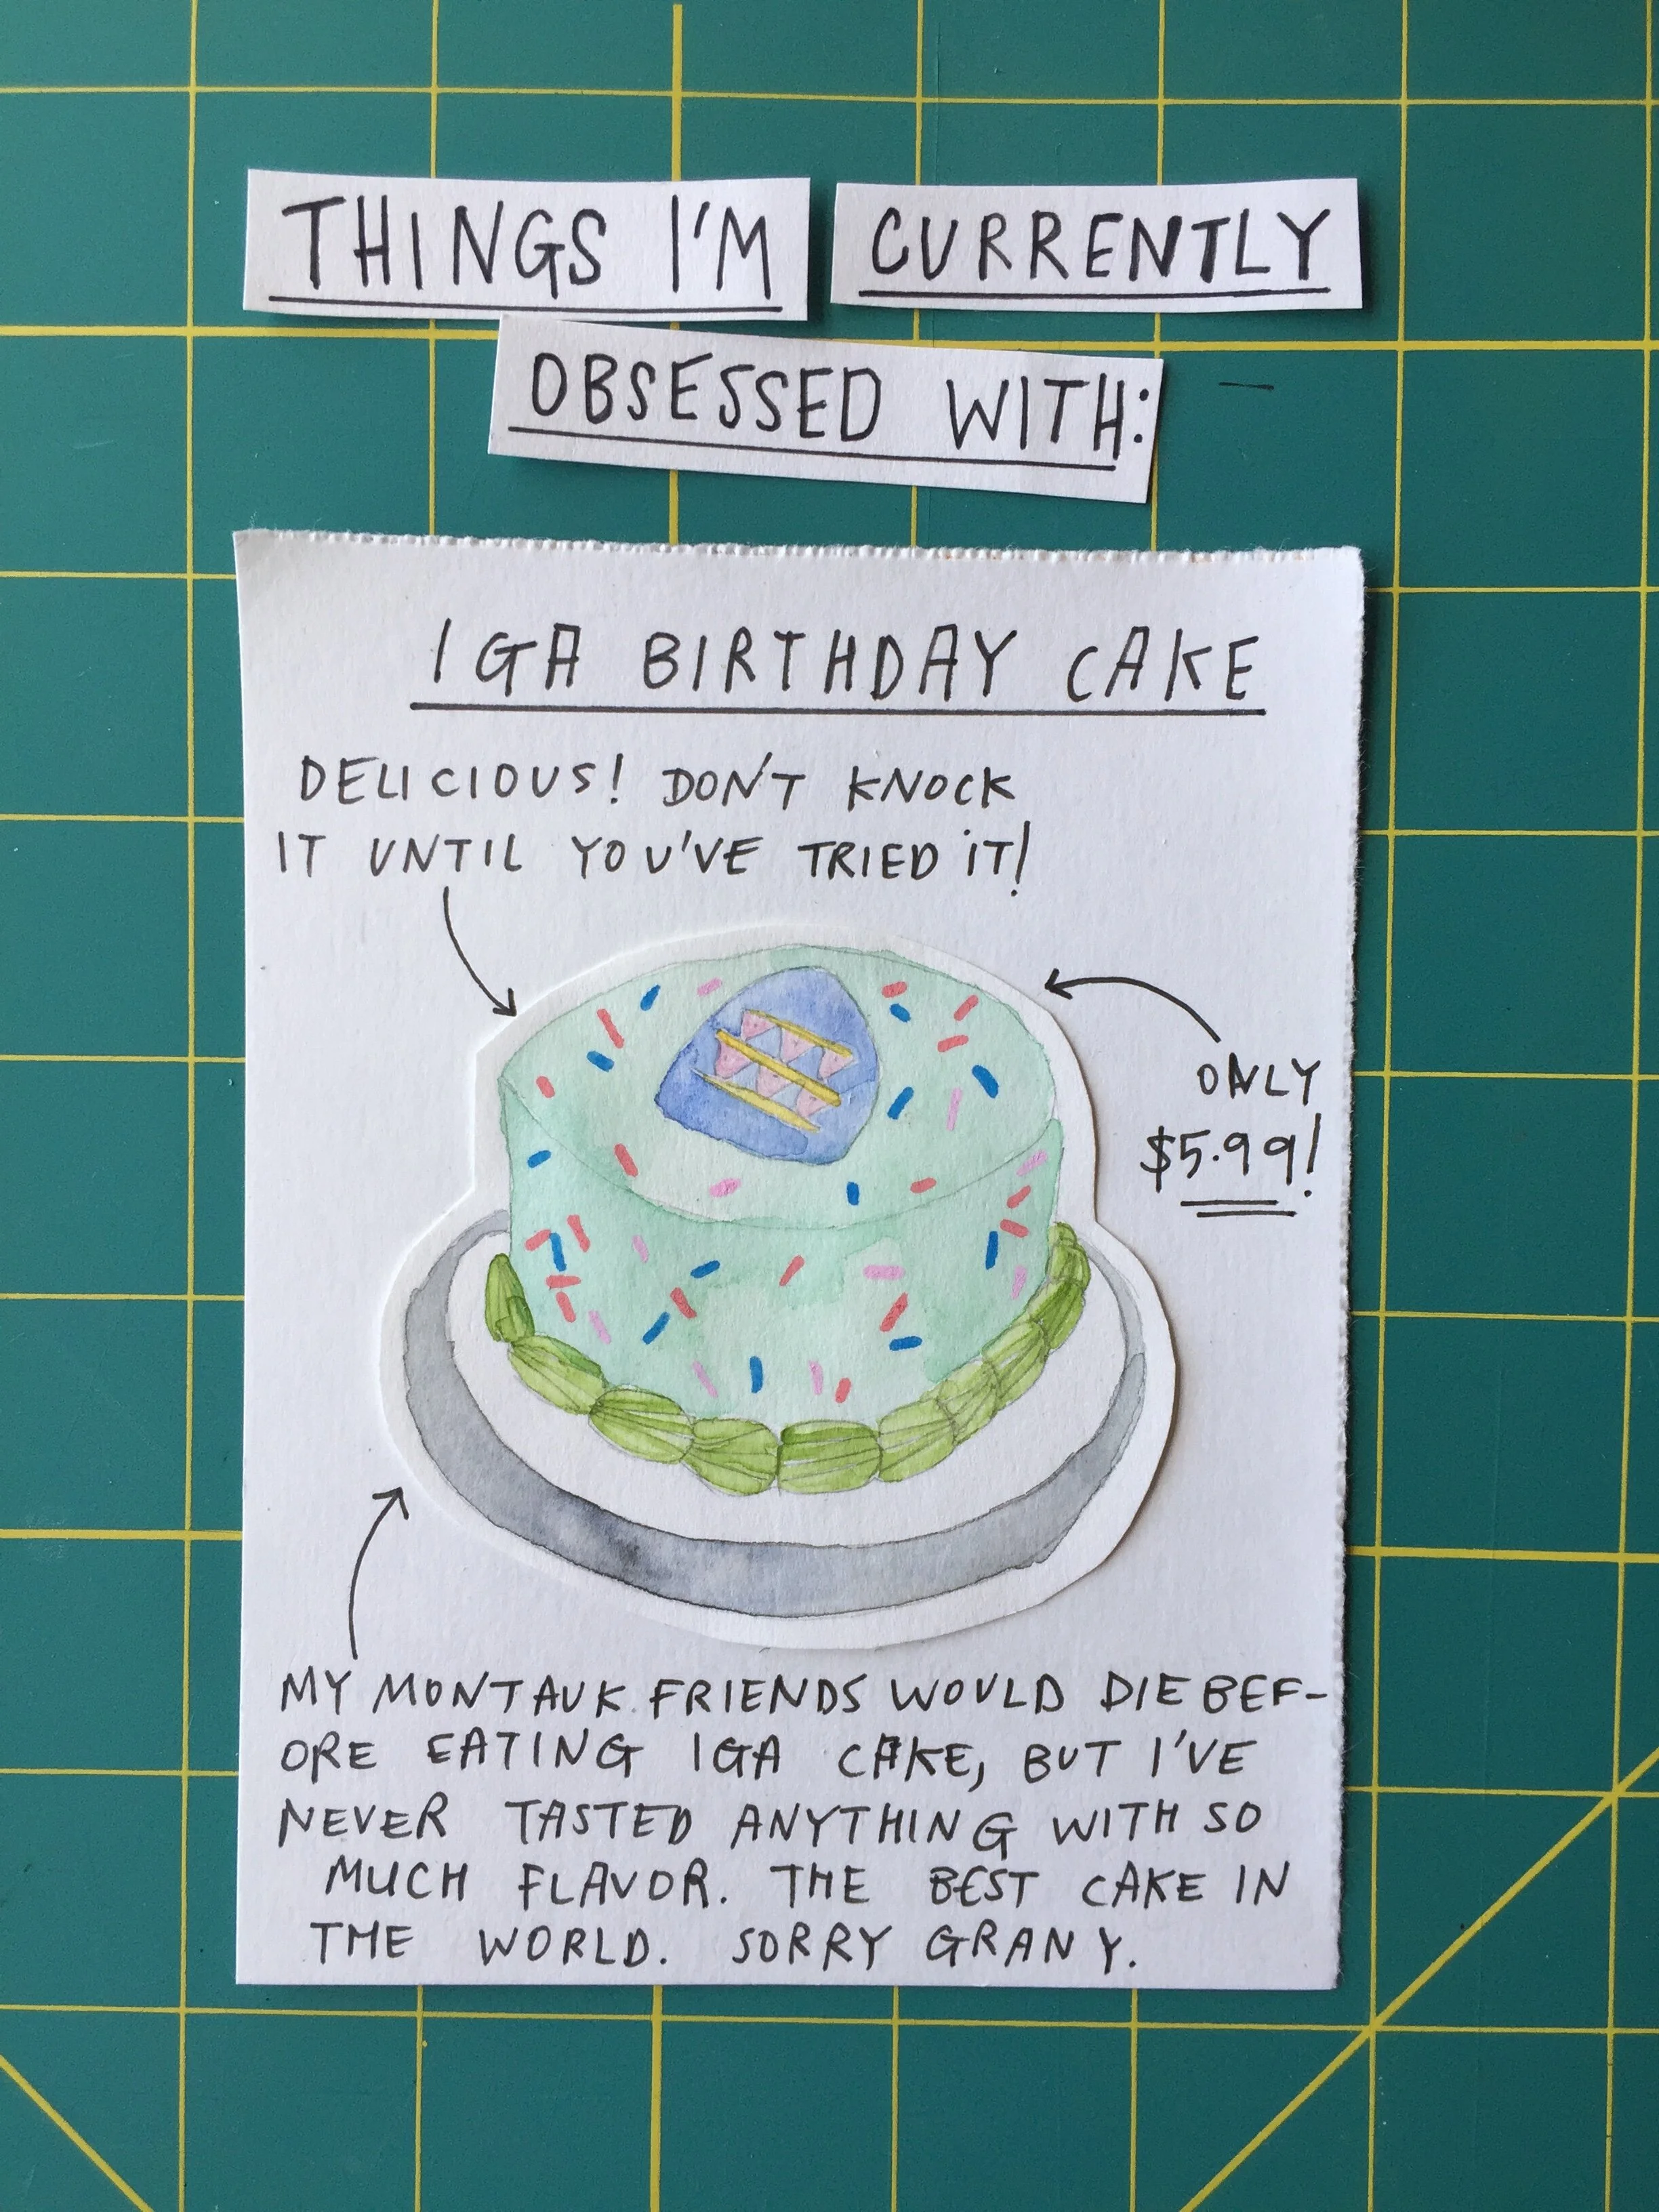 THINGS I'M CURRENTLY
OBSESSED WITH:
IGA BIRTHDAY CAKE
DELICIOUS! DON'T KNOCK
IT UNTIL YOU'VE TRIED IT!
ONLY
$5.99!
MY MONTAUK FRIENDS WOULD DIE BEF-
ORE EATING IGA CAKE, BUT I'VE
NEVER TASTED ANYTHING WITH SO
MUCH FLAVOR. THE BEST CAKE IN
THE WORLD. SORRY GRANY.